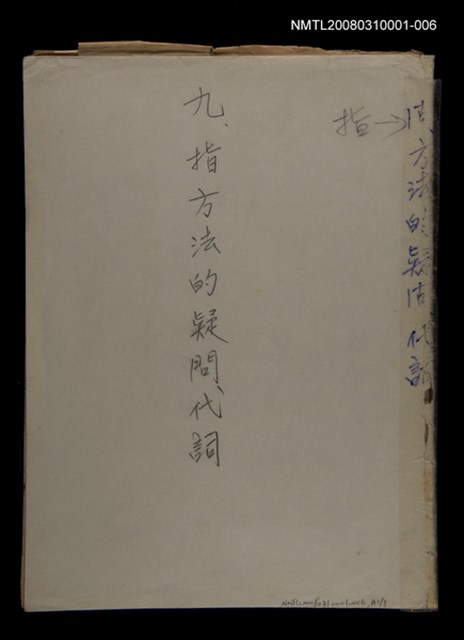 NMTL20080310001-006
指→问方法的疑问代詞
九、指方法的疑問代詞